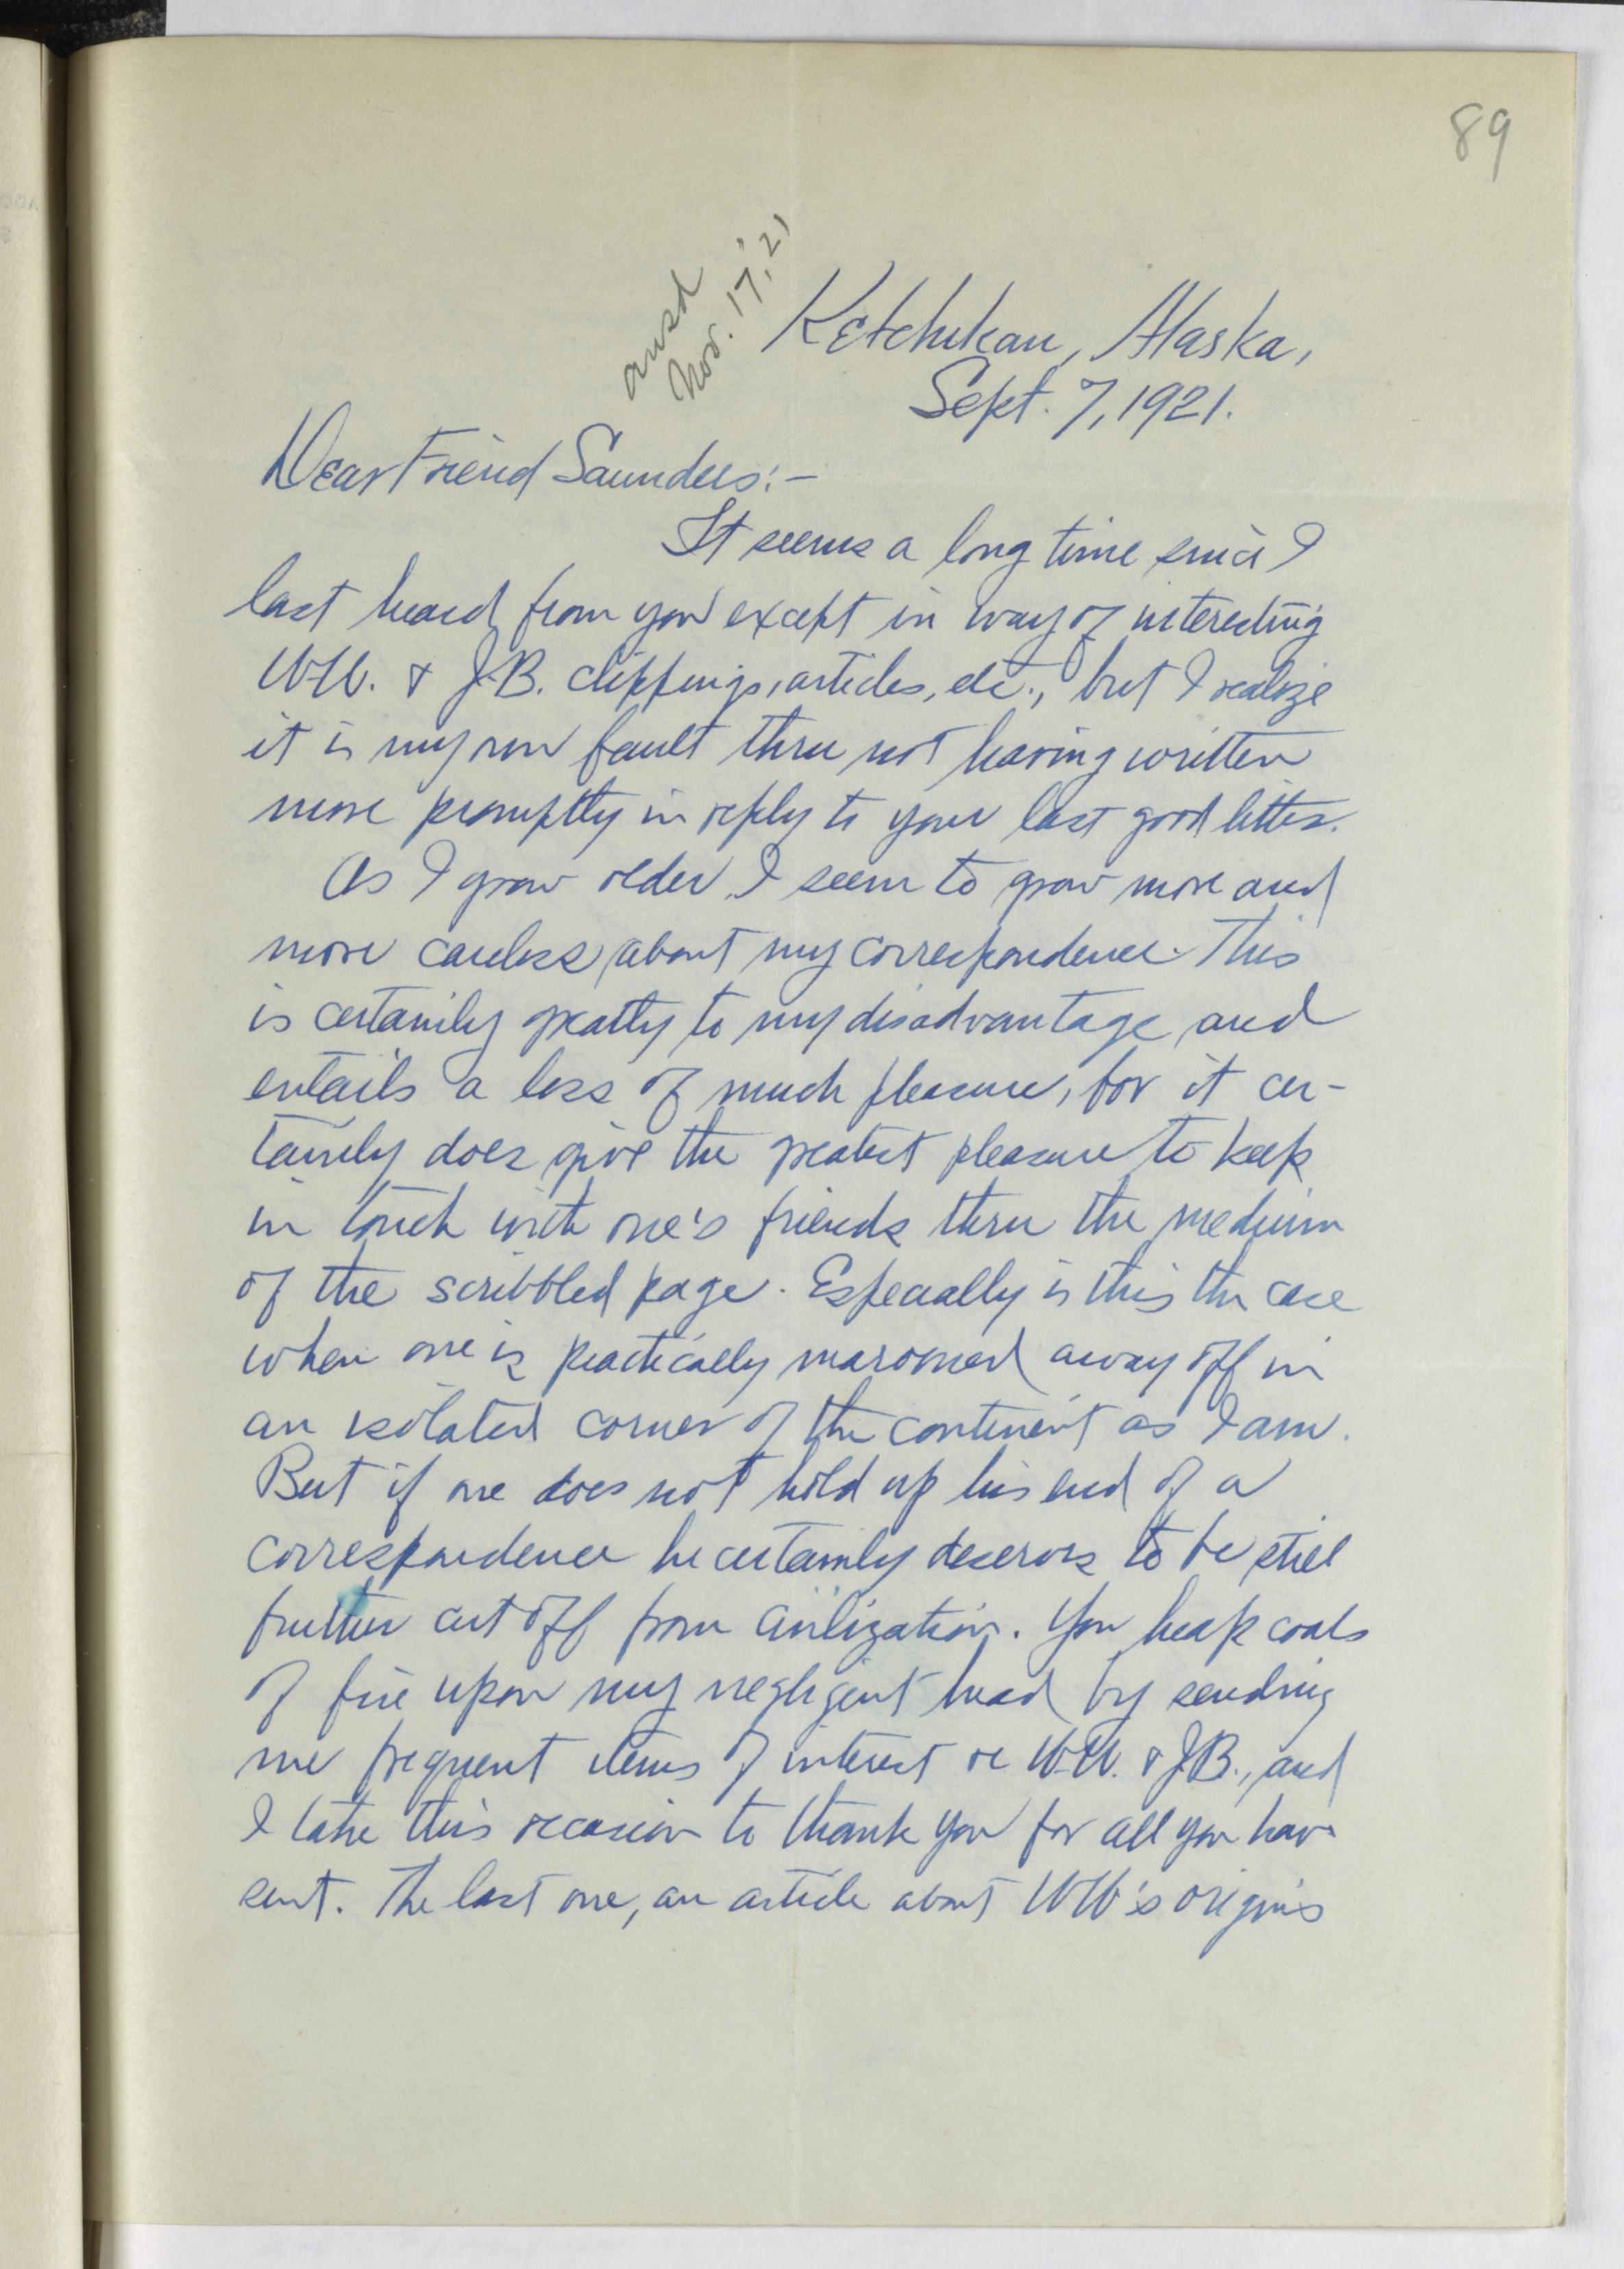 89
ansd
Nov. 17, '21
Ketchikan, Alaska,
Sept. 7, 1921.
Dear Friend Saunders:—
It seems a long time since I
last heard from you except in way of interesting
W.W. & J.B. clippings, articles, etc., but I realize
it is my own fault thru not having written
more promptly in reply to your last good letter.
As I grow older I seem to grow more and
more careless about my correspondence. This
is certainly greatly to my disadvantage and
entails a loss of much pleasure, for it cer-
tainly does give the greatest pleasure to keep
in touch with one's friends thru the medium
of the scribbled page. Especially is this the case
when one is practically marooned away off in
an isolated corner of the continent as I am.
But if one does not hold up his end of a
correspondence he certainly deserves to be still
further cut off from civilization. You heap coals
of fire upon my negligent head by sending
me frequent items of interest re W.W. & J.B., and
I take this occasion to thank you for all you have
sent. The last one, an article about WW's origins